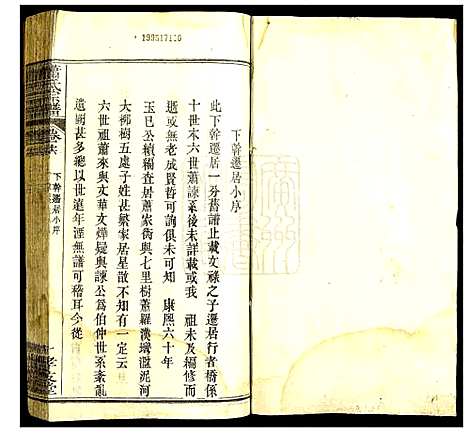 199517126
下幹遷居小序
此下幹遷居一分舊譜止載文祿之子遷居行者橋係
十世本六世蕭諫系後未詳載或我　祖未及編修而
逝或無老成賢哲可詢俱未可知　康熙六十年
玉巳公續獨查居蕭家衡與七里樹蕭羅漢灣濫泥河
大柳樹五處子姓甚繁家居星散不知有一定云
六世祖蕭來與文華文燁疑與諫公為伯仲世系紊亂
遺闕甚多總以世遠年湮無譜可稽耳今從
下幹遷居小序